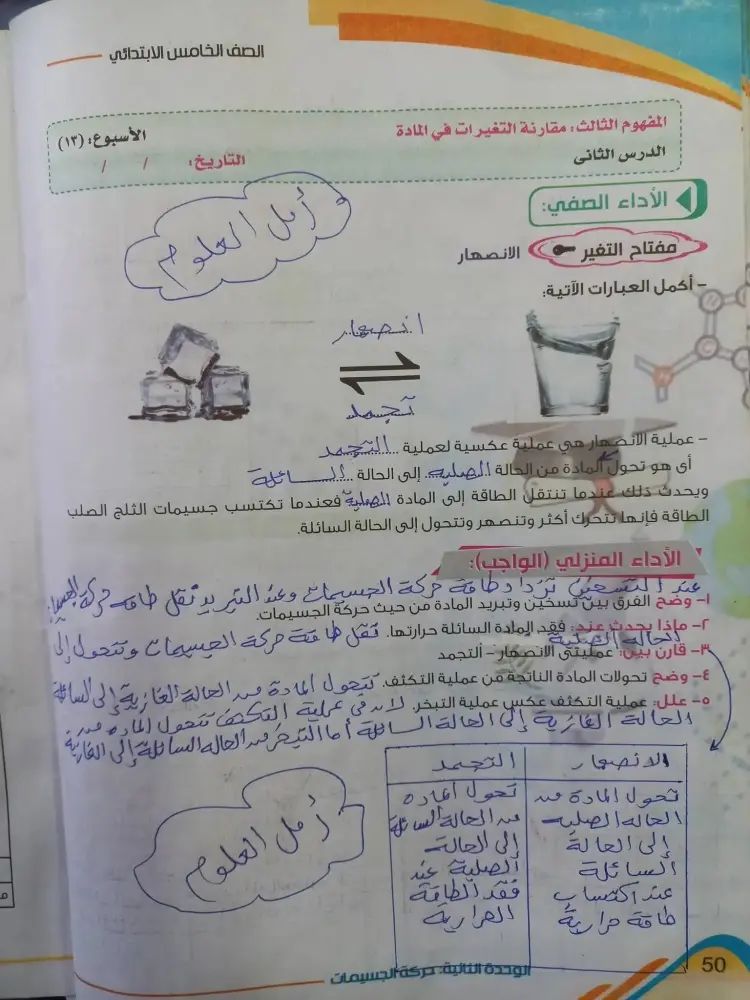 الصف الخامس الابتدائي
المفهوم الثالث: مقارنة التغيرات في المادة
الأسبوع: (١٣)
الدرس الثانى
التاريخ: / /
الأداء الصفي:
أمل العلوم
مفتاح التغير
الانصهار
- أكمل العبارات الآتية:
انصهار
تجمد
- عملية الانصهار هي عملية عكسية لعملية التجمد
أى هو تحول المادة من الحالة الصلبه إلى الحالة السائلة
ويحدث ذلك عندما تنتقل الطاقة إلى المادة الصلبة فعندما تكتسب جسيمات الثلج الصلب
الطاقة فإنها تتحرك أكثر وتنصهر وتتحول إلى الحالة السائلة.
الأداء المنزلي (الواجب):
عند التسخين تزداد طاقة حركة الجسيمات وعند التبريد تقل طاقه حركة الجسيمات
١- وضح الفرق بين تسخين وتبريد المادة من حيث حركة الجسيمات.
٢- ماذا يحدث عند: فقد المادة السائلة حرارتها. تقل طاقة حركة الجسيمات وتتحول إلى
الحاله الصلبة
٣- قارن بين: عمليتي الانصهار - التجمد
٤- وضح تحولات المادة الناتجة من عملية التكثف. تتحول المادة من الحالة الغازية إلى السائلة
٥- علل: عملية التكثف عكس عملية التبخر. لان في عملية التكثف تتحول المادة من
الحالة الغازية إلى الحالة السائلة أما التبخر من الحاله السائلة إلى الغازية
الانصهار
التجمد
تحول المادة من
الحاله الصلبه
إلى الحالة
السائلة
عند اكتساب
طاقة حرارية
تحول الماده
من الحالة السائلة
إلى الحالة
الصلبة عند
فقد الطاقة
الحرارية
أمل العلوم
الوحدة الثانية: حركة الجسيمات
50